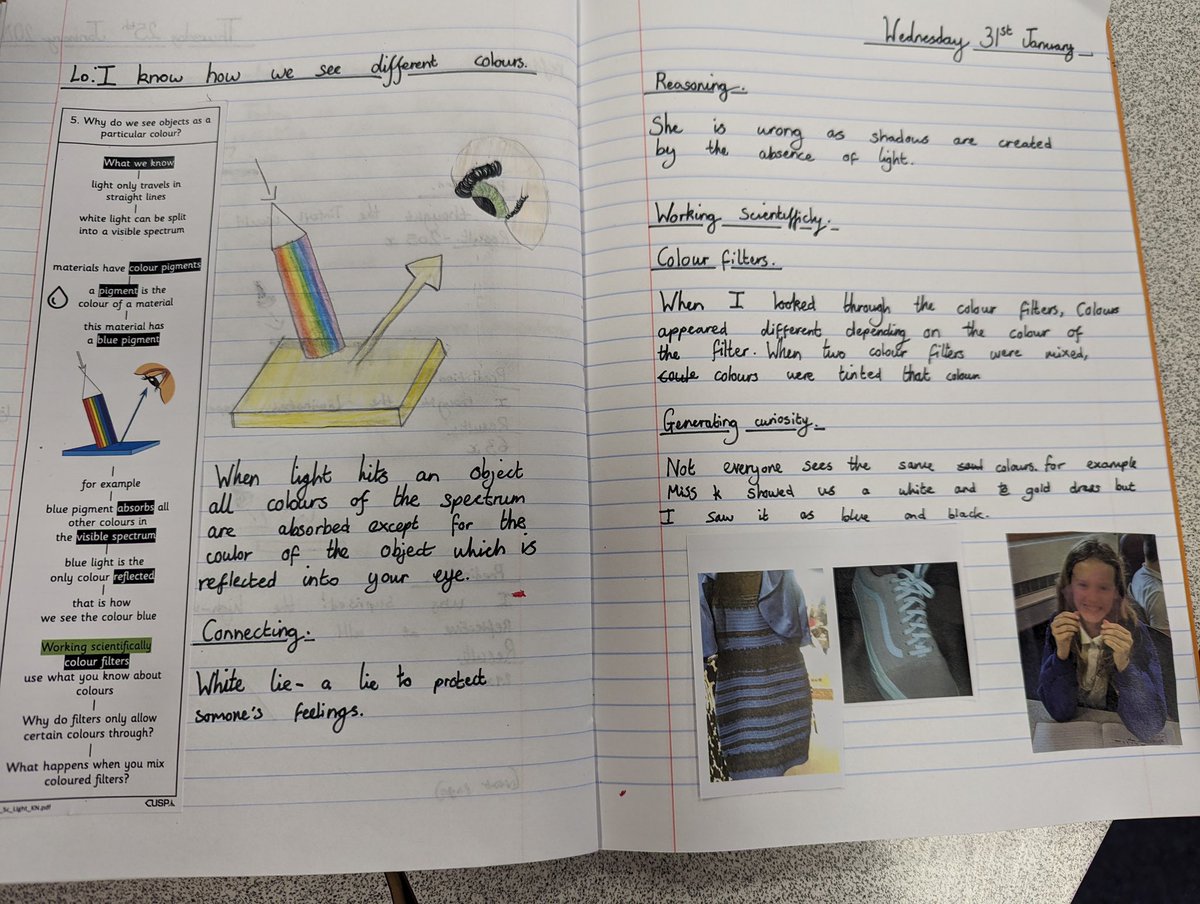 Lo: I know how we see different colours.
5. Why do we see objects as a
particular colour?
What we know
light only travels in
straight lines
white light can be split
into a visible spectrum
materials have colour pigments
a pigment is the
colour of a material
this material has
a blue pigment
for example
blue pigment absorbs all
other colours in
the visible spectrum
blue light is the
only colour reflected
that is how
we see the colour blue
Working scientifically
colour filters
use what you know about
colours
Why do filters only allow
certain colours through?
What happens when you mix
coloured filters?
_Sc_Light_KN.pdf
CUSP
When light hits an object
all colours of the spectrum
are absorbed except for the
coulor of the object which is
reflected into your eye.
Connecting.
White lie - a lie to protect
somone's feelings.
Wednesday 31st January
Reasoning.
She is wrong as shadows are created
by the absence of light.
Working scientifficly.
Colour filters.
When I looked through the colour filters, Colours
appeared different depending on the colour of
the filter. When two colour filters were mixed,
colours were tinted that colour
Generating curiosity.
Not everyone sees the same colours. for example
Miss K showed us a white and gold dress but
I saw it as blue and black.